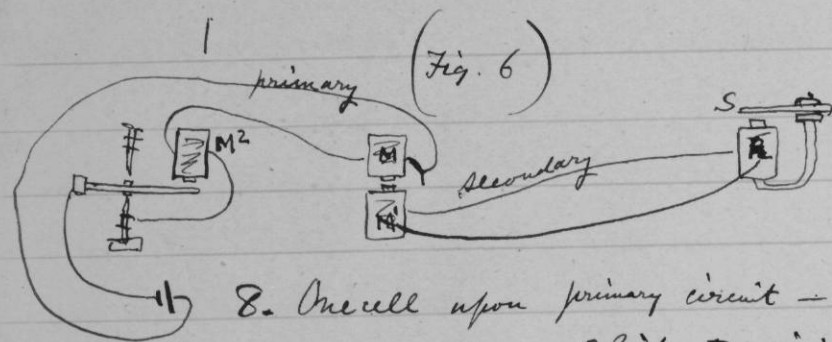 (Fig. 6)
primary
S
M²
M
R
secondary
M'
8. One cell upon primary circuit —